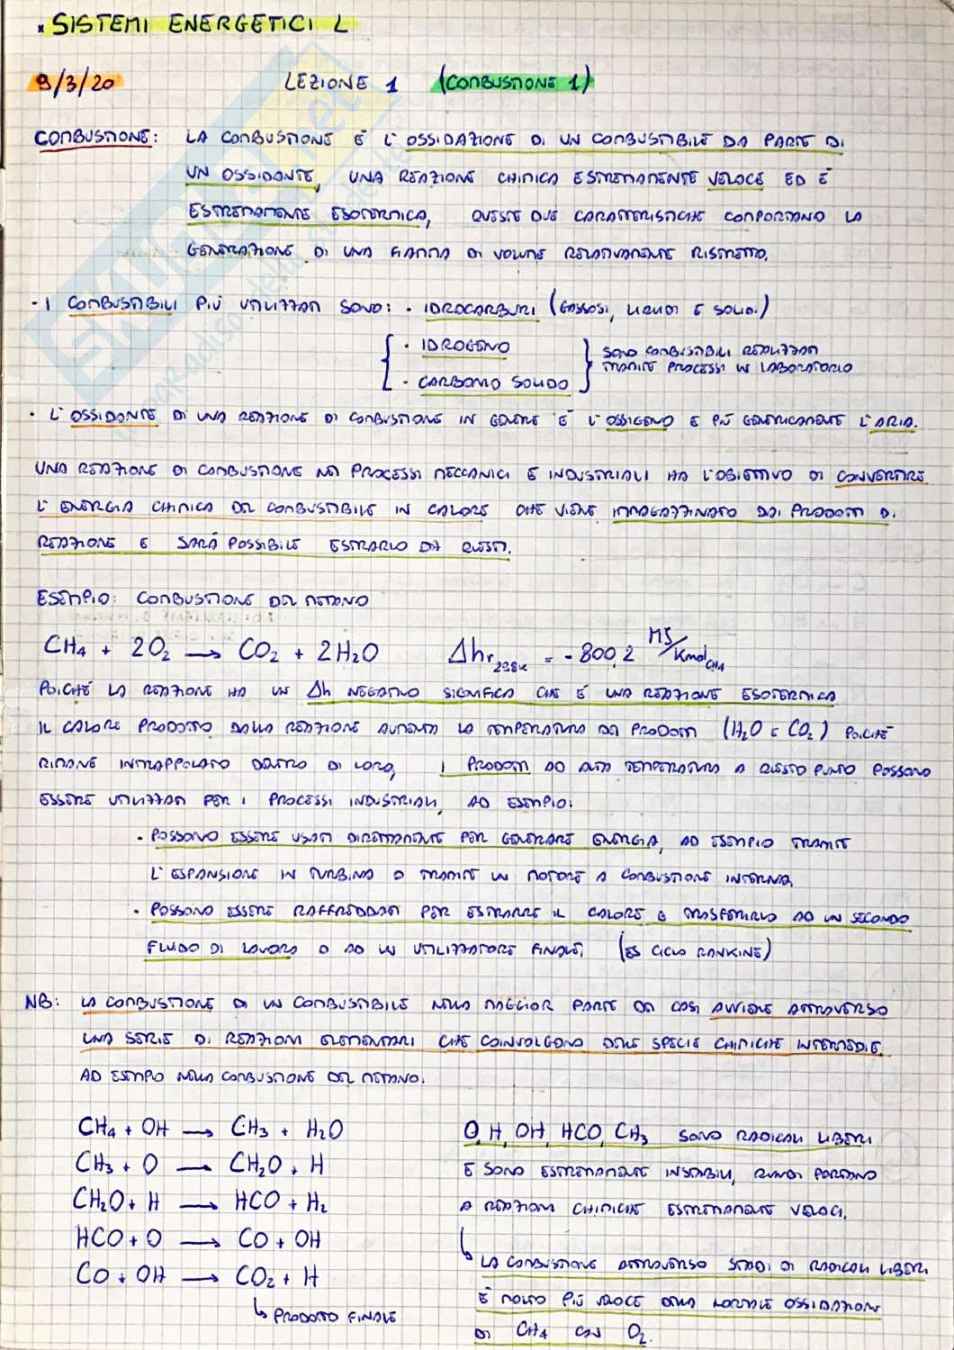 * SISTEMI ENERGETICI L
9/3/20 LEZIONE 1 (COMBUSTIONE 1)
COMBUSTIONE: LA COMBUSTIONE È L'OSSIDAZIONE DI UN COMBUSTIBILE DA PARTE DI
UN OSSIDANTE, UNA REAZIONE CHIMICA ESTREMAMENTE VELOCE ED È
ESTREMAMENTE ESOTERMICA, QUESTE DUE CARATTERISTICHE COMPORTANO LA
GENERAZIONE DI UNA FIAMMA DI VOLUME RELATIVAMENTE RISTRETTO.
· I COMBUSTIBILI PIÙ UTILIZZATI SONO: · IDROCARBURI (GASSOSI, LIQUIDI E SOLIDI)
· IDROGENO
· CARBONIO SOLIDO
SONO COMBUSTIBILI REALIZZATI
TRAMITE PROCESSI IN LABORATORIO
· L'OSSIDANTE DI UNA REAZIONE DI COMBUSTIONE IN GENERE È L'OSSIGENO E PIÙ GENERICAMENTE L'ARIA.
UNA REAZIONE DI COMBUSTIONE NEI PROCESSI MECCANICI E INDUSTRIALI HA L'OBIETTIVO DI CONVERTIRE
L'ENERGIA CHIMICA DEL COMBUSTIBILE IN CALORE CHE VIENE IMMAGAZZINATO DAI PRODOTTI DI
REAZIONE E SARÀ POSSIBILE ESTRARLO DA QUESTI.
ESEMPIO: COMBUSTIONE DEL METANO
CH4 + 2O2 → CO2 + 2H2O Δhr298K = -800,2 MJ/KmolCH4
POICHÉ LA REAZIONE HA UN Δh NEGATIVO SIGNIFICA CHE È UNA REAZIONE ESOTERMICA
IL CALORE PRODOTTO DALLA REAZIONE AUMENTA LA TEMPERATURA DEI PRODOTTI (H2O E CO2) POICHÉ
RIMANE INTRAPPOLATO DENTRO DI LORO, I PRODOTTI AD ALTA TEMPERATURA A QUESTO PUNTO POSSONO
ESSERE UTILIZZATI PER I PROCESSI INDUSTRIALI, AD ESEMPIO:
· POSSONO ESSERE USATI DIRETTAMENTE PER GENERARE ENERGIA, AD ESEMPIO TRAMITE
L'ESPANSIONE IN TURBINA O TRAMITE UN MOTORE A COMBUSTIONE INTERNA.
· POSSONO ESSERE RAFFREDDATI PER ESTRARRE IL CALORE E TRASFERIRLO AD UN SECONDO
FLUIDO DI LAVORO O AD UN UTILIZZATORE FINALE. (ES CICLO RANKINE)
NB: LA COMBUSTIONE DI UN COMBUSTIBILE NELLA MAGGIOR PARTE DEI CASI AVVIENE ATTRAVERSO
UNA SERIE DI REAZIONI ELEMENTARI CHE COINVOLGONO DELLE SPECIE CHIMICHE INTERMEDIE.
AD ESEMPIO NELLA COMBUSTIONE DEL METANO:
CH4 + OH → CH3 + H2O
CH3 + O → CH2O + H
CH2O + H → HCO + H2
HCO + O → CO + OH
CO + OH → CO2 + H
↳ PRODOTTO FINALE
O, H, OH, HCO, CH3 SONO RADICALI LIBERI
E SONO ESTREMAMENTE INSTABILI, QUINDI PORTANO
A REAZIONI CHIMICHE ESTREMAMENTE VELOCI.
↳ LA COMBUSTIONE ATTRAVERSO STADI DI RADICALI LIBERI
È MOLTO PIÙ VELOCE DELLA NORMALE OSSIDAZIONE
DI CH4 CON O2.